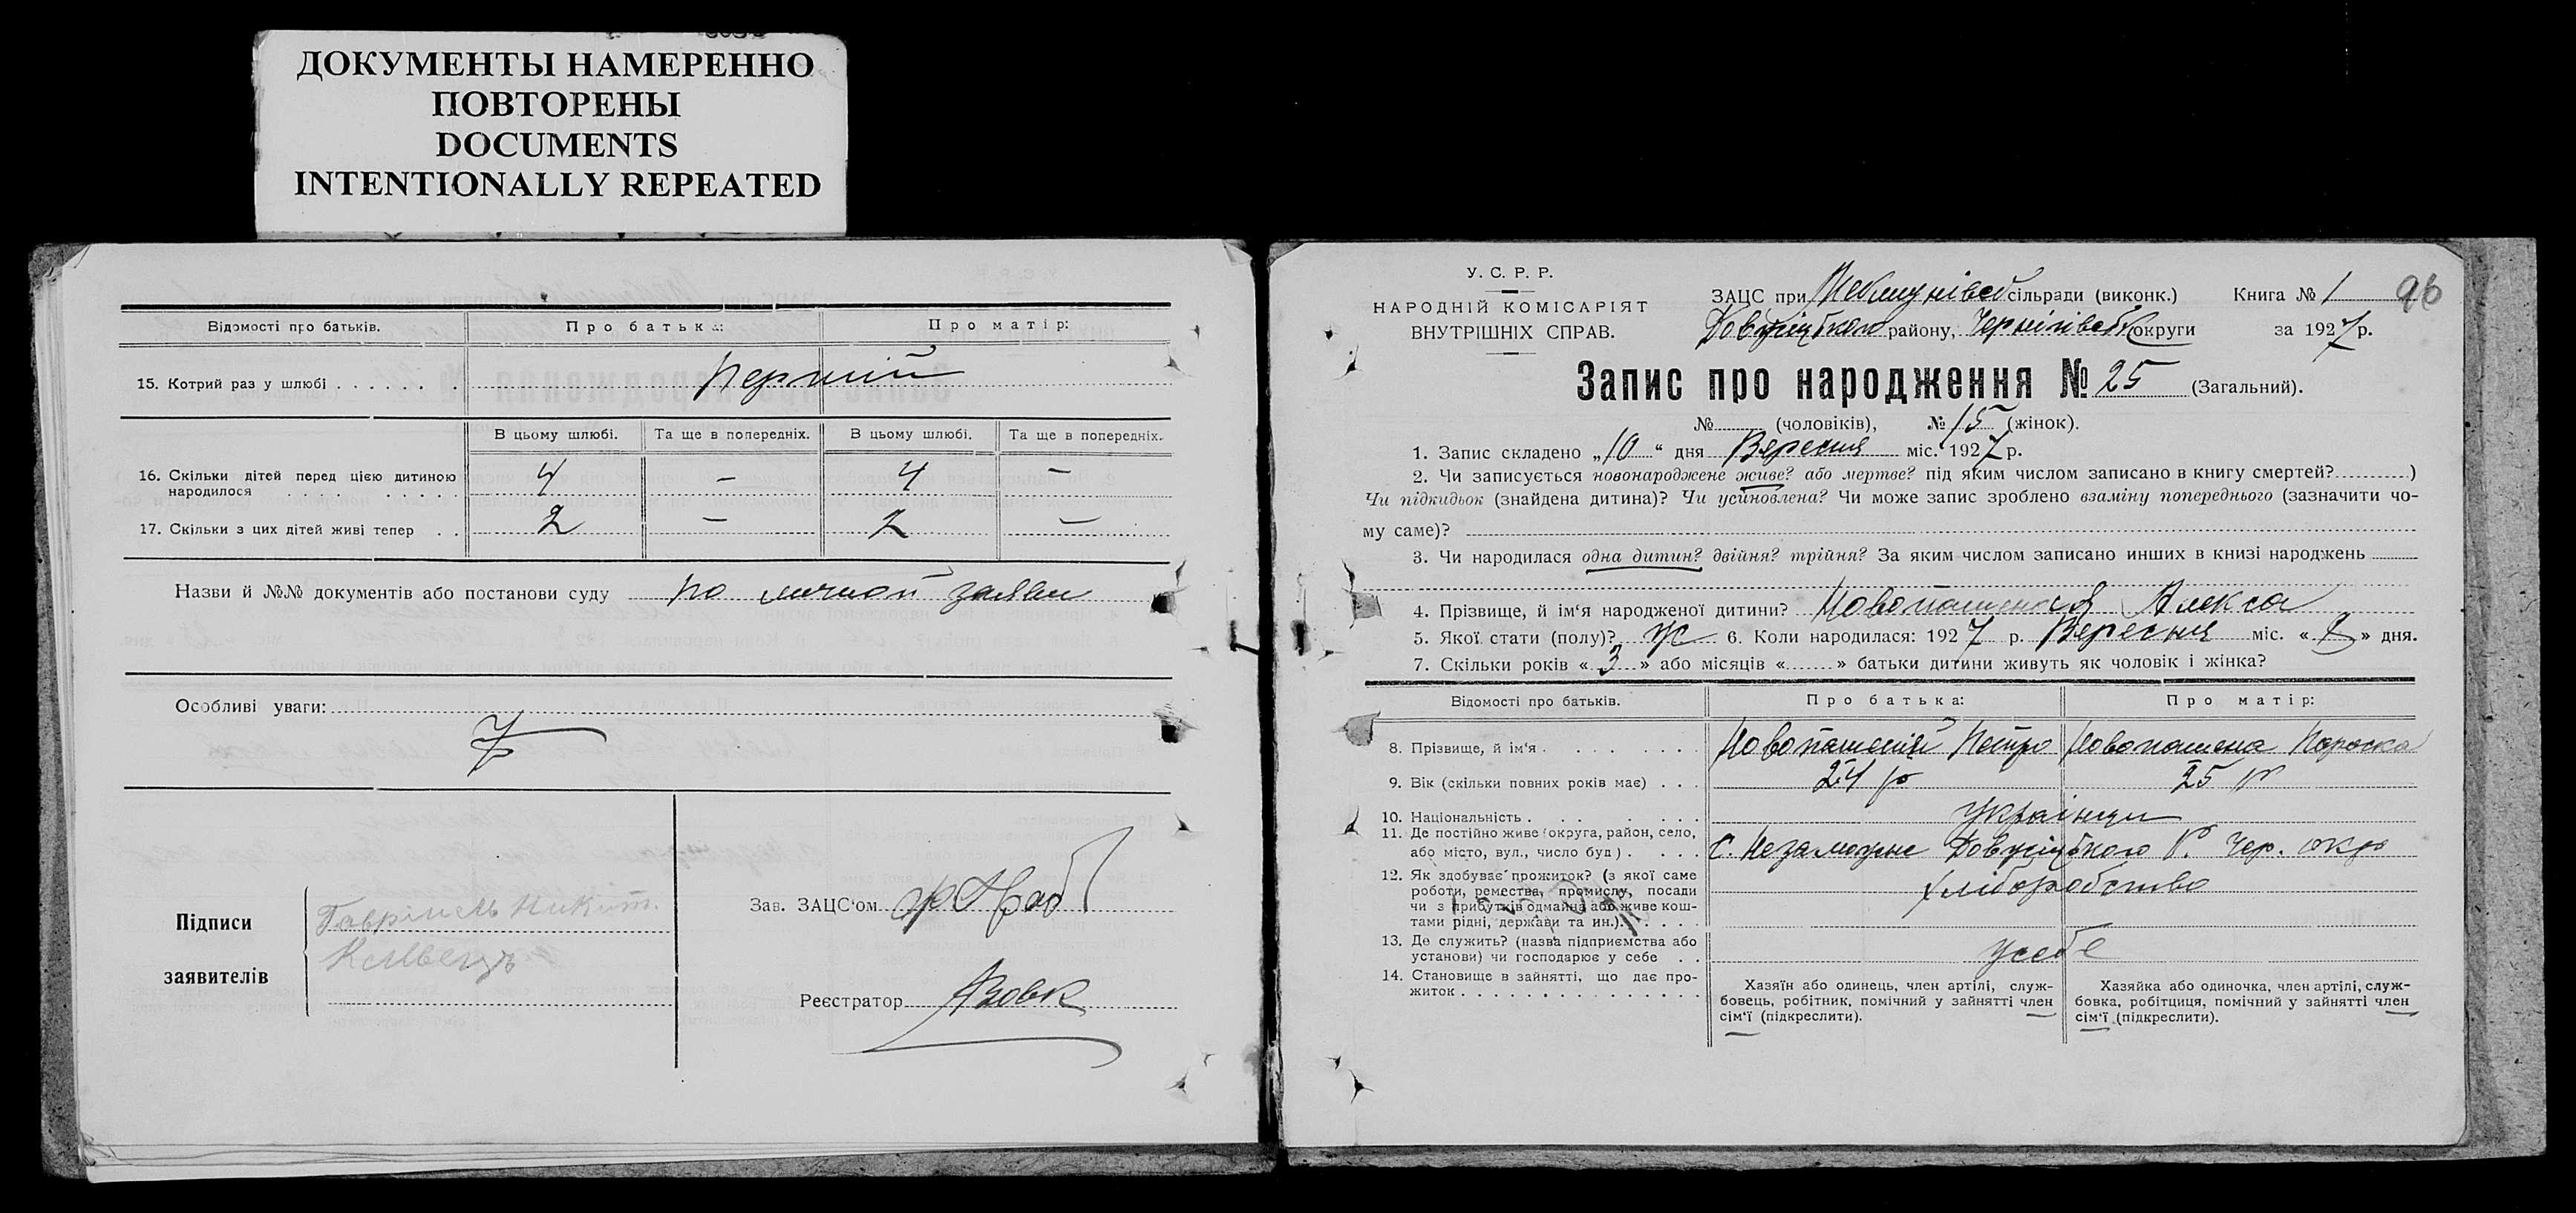 ДОКУМЕНТЫ НАМЕРЕННО
ПОВТОРЕНЫ
DOCUMENTS
INTENTIONALLY REPEATED
Відомості про батьків. Про батька: Про матір:
15. Котрий раз у шлюбі . . . . . . . Перший
В цьому шлюбі. Та ще в попередніх. В цьому шлюбі. Та ще в попередніх.
16. Скільки дітей перед цією дитиною
народилося . . . . . . . . . 4 — 4 —
17. Скільки з цих дітей живі тепер . . 2 — 2 —
Назви й №№ документів або постанови суду по личной заяви
Особливі уваги:
Підписи
заявителів
Зав. ЗАЦС'ом
Реєстратор
У. С. Р. Р.
НАРОДНІЙ КОМІСАРІЯТ
ВНУТРІШНІХ СПРАВ.
ЗАЦС при сільради (виконк.) Книга № 1 96
району, Чернігівськ округи за 1927 р.
Запис про народження № 25 (Загальний).
№ (чоловіків), № 15 (жінок).
1. Запис складено „10“ дня Вересня міс. 1927 р.
2. Чи записується новонароджене живе? або мертве? під яким числом записано в книгу смертей? )
Чи підкидьок (знайдена дитина)? Чи усиновлена? Чи може запис зроблено взаміну попереднього (зазначити чо-
му саме)?
3. Чи народилася одна дитин? двійня? трійня? За яким числом записано инших в книзі народжень
4. Прізвище, й ім'я народженої дитини? Алекса
5. Якої стати (полу)? ж 6. Коли народилася: 1927 р. Вересня міс. « » дня.
7. Скільки років «3» або місяців « » батьки дитини живуть як чоловік і жінка?
Відомості про батьків. Про батька: Про матір:
8. Прізвище, й ім'я . . . . . . . Новопашений Петро Новопашена Параска
9. Вік (скільки повних років має) . . . 24 р 25 р
10. Національність . . . . . . українци
11. Де постійно живе (округа, район, село,
або місто, вул., число буд) . . . . с. Незаможне р. Чер. окр
12. Як здобуває прожиток? (з якої саме
роботи, ремества, промислу, посади
чи з прибутків одмайна або живе кош-
тами рідні, держави та ин.). . . . . хліборобство
13. Де служить? (назва підприємства або
установи) чи господарює у себе . . усебе
14. Становище в зайнятті, що дає про-
житок . . . . . . . . . . . . . . .
Хазяїн або одинець, член артілі, служ-
бовець, робітник, помічний у зайнятті член
сім'ї (підкреслити).
Хазяйка або одиночка, член артілі, служ-
бовка, робітциця, помічний у зайнятті член
сім'ї (підкреслити).